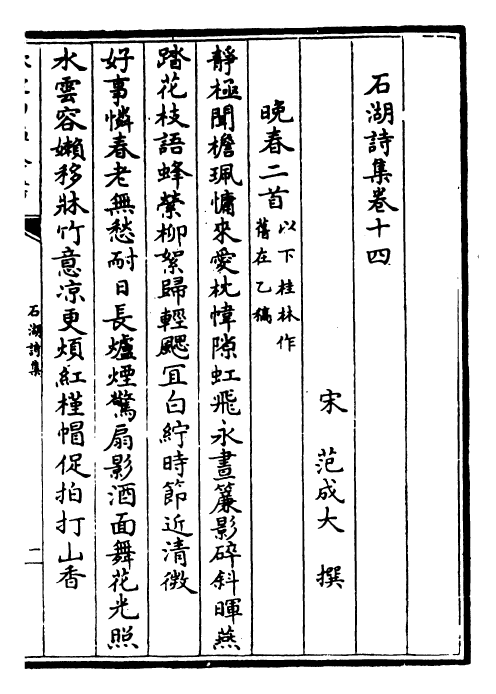 石湖詩集卷十四
宋 范成大 撰
晚春二首 以下桂林作
舊在乙稿
靜極聞檐珮慵來愛枕幃隙虹飛永晝簾影碎斜暉燕
踏花枝語蜂縈柳絮歸輕颸宜白紵時節近清徴
好事憐春老無愁耐日長爐煙驚扇影酒面舞花光照
水雲容嬾移牀竹意凉更煩紅槿帽促拍打山香
石湖詩集
二